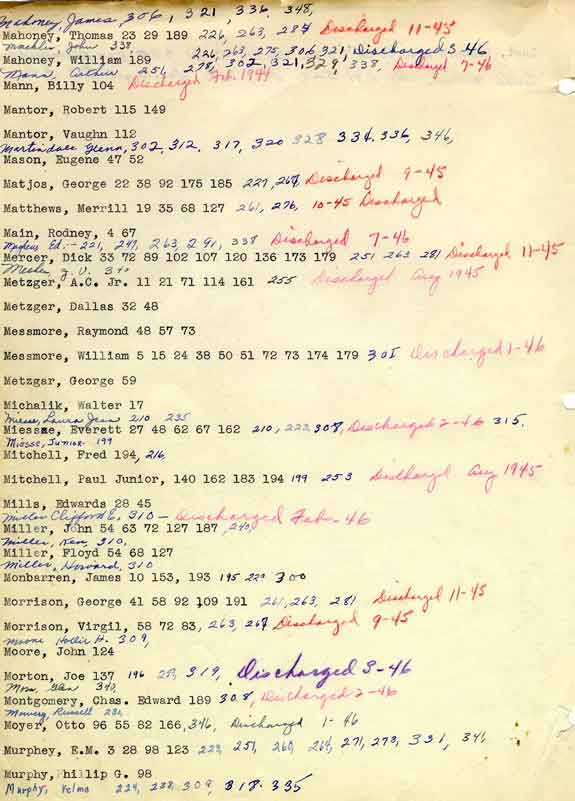 Mahoney, James, 306, 321, 336, 348,
Mahoney, Thomas 23 29 189 226, 263, 284 Discharged 11-45
Machlin, John 338,
Mahoney, William 189 226, 263, 275, 306, 321, Discharged 3-46
Mann, Arthur 251, 278, 302, 321, 329, 338, Discharged 7-46
Mann, Billy 104 Discharged Feb. 1944
Mantor, Robert 115 149
Mantor, Vaughn 112
Martindale Glenn, 302, 312, 317, 320 328 334, 336, 346,
Mason, Eugene 47 52
Matjos, George 22 38 92 175 185 227, 267 Discharged 9-45
Matthews, Merrill 19 35 68 127 261, 276, 10-45 Discharged
Main, Rodney, 4 67 Discharged 7-46
Ed. - 221, 247, 263, 291, 338
Mercer, Dick 33 72 89 102 107 120 136 173 179 251 263 281 Discharged 11-45
340
Metzger, A.C. Jr. 11 21 71 114 161 255 Discharged Aug 1945
Metzger, Dallas 32 48
Messmore, Raymond 48 57 73
Messmore, William 5 15 24 38 50 51 72 73 174 179 301 Discharged 1-46
Metzgar, George 59
Michalik, Walter 17
Miesse, Laura Jean 210 235
Miessse, Everett 27 48 62 67 162 210, 223, 308, Discharged 2-46 315.
Miesse, Junior. 199
Mitchell, Fred 194, 216,
Mitchell, Paul Junior, 140 162 183 194 199 253 Discharged Aug 1945
Mills, Edwards 28 45
Miller Clifford E, 310 - Discharged Feb. 46
Miller, John 54 63 72 127 187, 240,
Miller, Ken 310,
Miller, Floyd 54 68 127
Miller, Howard, 310
Monbarren, James 10 153, 193 195 220 300
Morrison, George 41 58 92 109 191 261, 263, 281 Discharged 11-45
Morrison, Virgil, 58 72 83, 263, 267 Discharged 9-45
Moore Hollis H. 309,
Moore, John 124
Morton, Joe 137 196 319, Discharged 3-46
Glen 340,
Montgomery, Chas. Edward 189 308, Discharged 2-46
Mowery, Russell 230,
Moyer, Otto 96 55 82 166, 346, Discharged 1-46
Murphey, E.M. 3 28 98 123 223, 251, 260, 264, 271, 273, 331, 341
Murphy, Phillip G. 98
Murphy, Velma 224, 228, 309, 318. 335